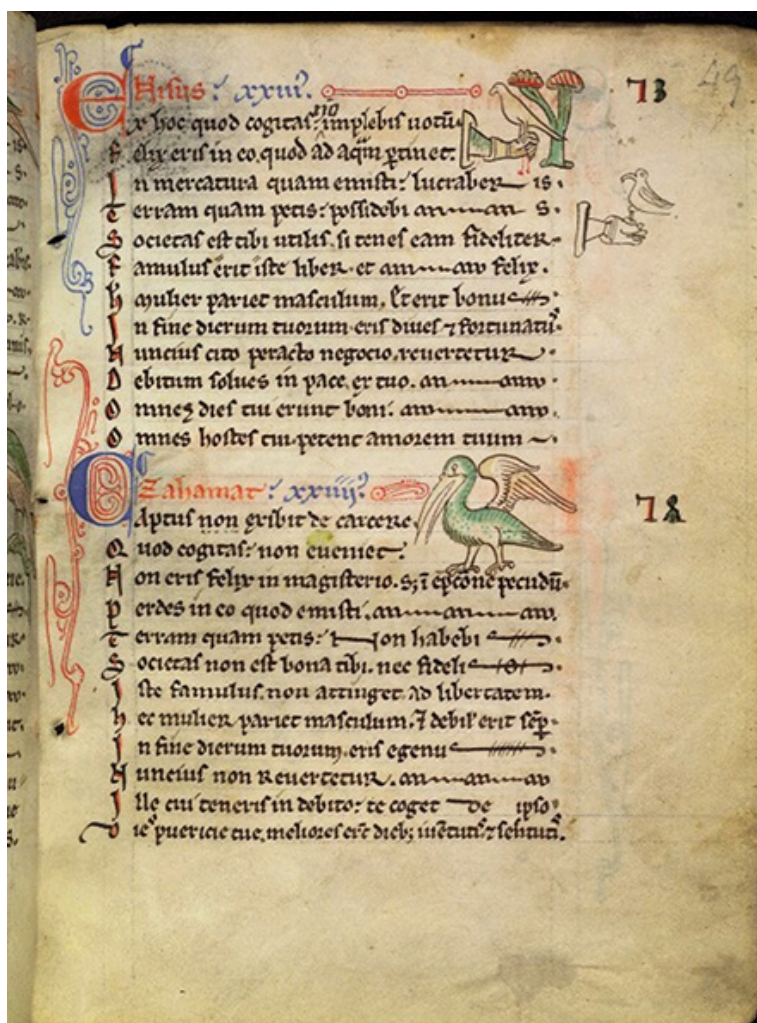 Ehisus: xxiii.
73
49
Ex hoc quod cogitas: implebis uotū
Felix eris in eo quod ad aq̄m ꝑtinet.
In mercatura quam emisti: lucraber is.
Terram quam petis: possidebi s.
Societas est tibi utilis. si tenes eam fideliter.
Famulus erit iste liber. et felix.
mulier pariet masculum. Et erit bonus
In fine dierum tuorum eris diues ⁊ fortunatꝰ.
Nuncius cito peracto negocio. reuertetur.
Debitum solues in pace. ex tuo.
Omnes dies tui erunt boni.
Omnes hostes tui petent amorem tuum
Zahamat: xxiiii.
74
Captus non exibit de carcere.
Quod cogitas: non eueniet.
Non eris felix in magisterio. pecudū.
Perdes in eo quod emisti.
Terram quam petis: non habebi
Societas non est bona tibi. nec fideli
Iste famulus. non attinget ad libertatem.
hec mulier pariet masculum. ⁊ debil' erit sēp.
In fine dierum tuorum. eris egenu
Nuncius non Reuertetur.
Ille cui teneris in debito: te coget de ipso.
puericie tue. meliores